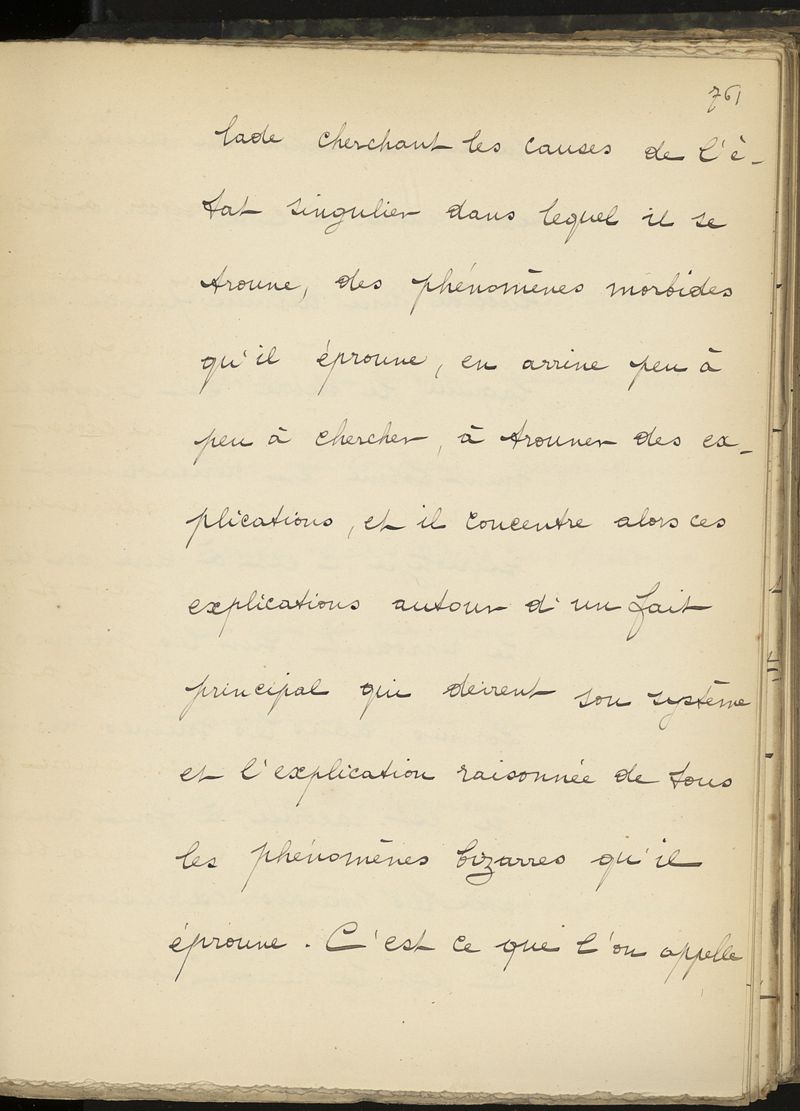 761
lade cherchant les causes de l'é-
tat singulier dans lequel il se
trouve, des phénomènes morbides
qu'il éprouve, en arrive peu à
peu à chercher, à trouver des ex-
plications, et il concentre alors ces
explications autour d'un fait
principal qui devient son système
et l'explication raisonnée de tous
les phénomènes bizarres qu'il
éprouve. C'est ce que l'on appelle